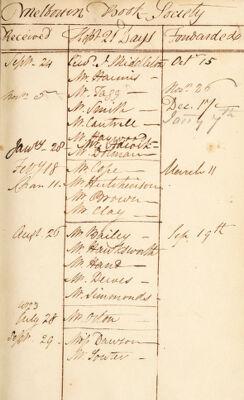 Melbourn Book Society
Received Kept 21 Days Forwarded
Sept. 24 Geo. J. Middleton Oct 15
Mr. Harris
Nov. 5 Mr. Fagg Nov. 26
Mr. Smith Dec. 17
Mr. Cantrill Jany 7th
Mr. Haywood
Jany. 28 Mr. Adcock
Mr. Dolman
Feby 18 Mr. Cope March 11
Mar 11. Mr. Hutchinson
Mr. Brown
Mr. Clay
Augt 26 Mr. Bailey Sep 19th
Mr. Hawksworth
Mr. Hand
Mr. Dewes
Mr. Simmonds
July 28 Mr. Orton
Sept. 29 Mrs. Dawson
Mr. Fowler